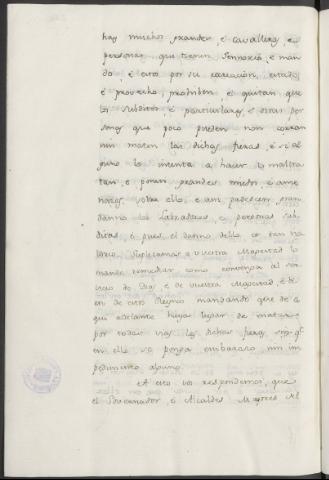 hay muchos grandes, é cavalleros, é
personas, que tienen Sennorio, é man
do, é estos por su recreacion, estado,
é provecho, prohiben, é quitan, que
los subditos, é particulares, é otras per
sonas que poco pueden non corran
nin maten las dichas fieras, é si al
guno lo intenta a hacer lo maltra
tan, o ponen grandes miedos, é ame
nazas, sobre ello, é ansi padecen gran
danno los Labradores, é personas sub
ditas, é pues el danno dello es tan no
torio, Suplicamos a vuestra Magestad lo
mande remediar como convenga al ser
vicio de Dios, é de vuestra Magestad, é bi
en de estos Reynos mandando que de a
qui adelante haya lugar de matarse
por todas vias las dichas fieras, sin q.e
en ello se ponga embarazo, nin im
pedimento alguno.
A esto vos respondemos, que
el Governador, o Alcaldes Mayores del